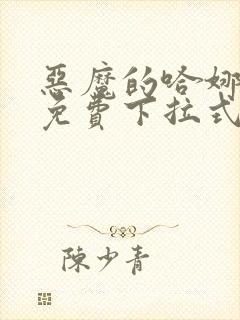 惡魔的哈娜
免費下拉式
陳少青